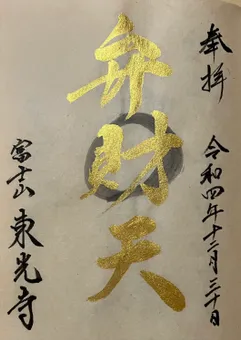 奉拝
令和四年十二月三十日
弁財天
富士山 東光寺